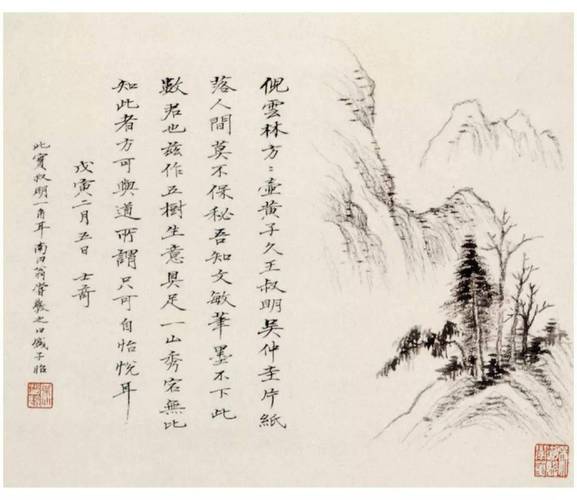 倪雲林方方壺黃子久王叔明吳仲圭片紙
落人間莫不保秘吾知文敏筆墨不下此
數君也茲作五樹生意具足一山秀宕無比
知此者方可與道所謂只可自怡悅耳
戊寅二月五日 士奇
此實叔明一角耳南田翁嘗